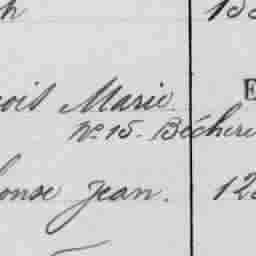 h 188
ois Marie E
No. 15. Bécher
onse Jean. 12